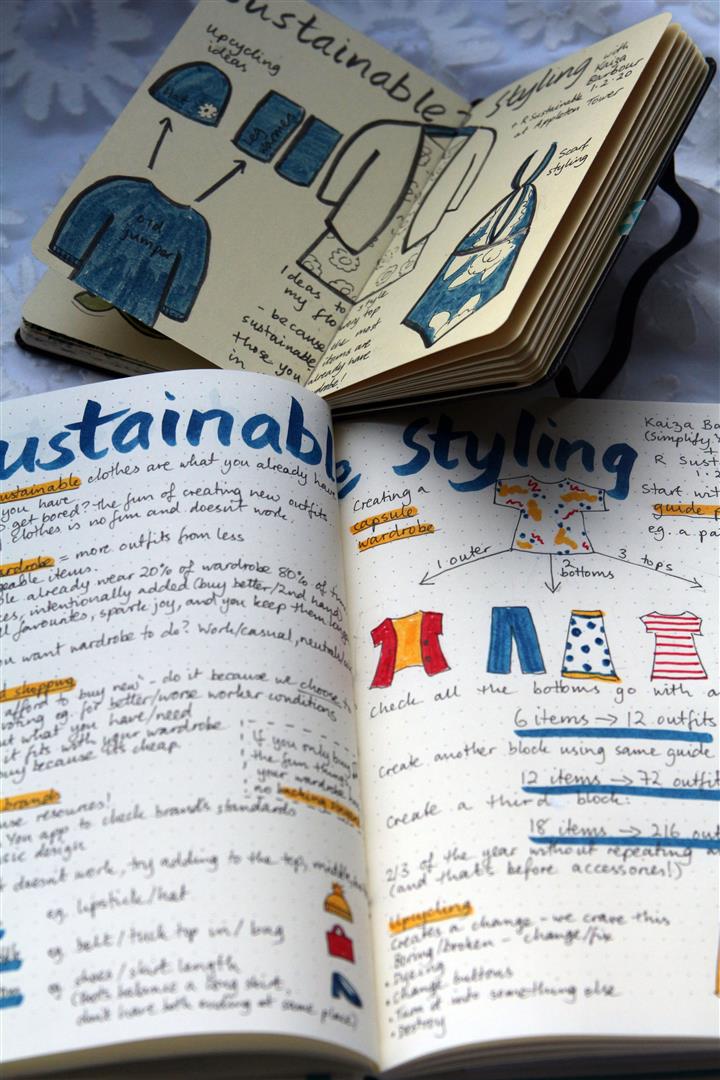 Sustainable
upcycling
ideas
Hat
leg
warmers
old
jumper
Ideas to
my flo
- because
sustainable
those you
in
Styling with
Kaiza
Barbour
1.2.20
R Sustainable
at Appleton Tower
Scarf
styling
style
top
the most
items are
already have
ustainable Styling
ustainable clothes are what you already have
you have
? get bored? The fun of creating new outfits
clothes is no fun and doesn't work.
ardrobe = more outfits from less
geable items.
le already wear 20% of wardrobe 80% of
ces, intentionally added (buy better/2nd hand)
l favourites, spark joy, and you keep them
ou want wardrobe to do? Work/casual,
d shopping
afford to buy new - do it because we choose
voting eg. for better/worse worker conditions
ut what you have/need
it fits with your wardrobe
buy because it's cheap
if you only buy
the fun thing
your wardrobe
no
brands
use resources!
You app to check brand's standards
sic design
t doesn't work, try adding to the top, middle,
eg. lipstick/hat
eg. belt/tuck top in/bag
eg. shoes/skirt length
(boots balance a long skirt,
don't have both ending at same place)
Kaiza Ba
(Simplify
+
R Sust
1.2
Creating a
capsule
wardrobe
Start with
guide p
eg. a pa
1 outer
2
bottoms
3 tops
Check all the bottoms go with a
6 items → 12 outfits
Create another block using same guide
12 items → 72 outfit
Create a third block:
18 items → 216 ou
2/3 of the year without repeating
(and that's before accessories!)
Upcycling
Creates a change - we crave this
Boring/broken - change/fix
• Dyeing
• Change buttons
• Turn it into something else
• Destroy